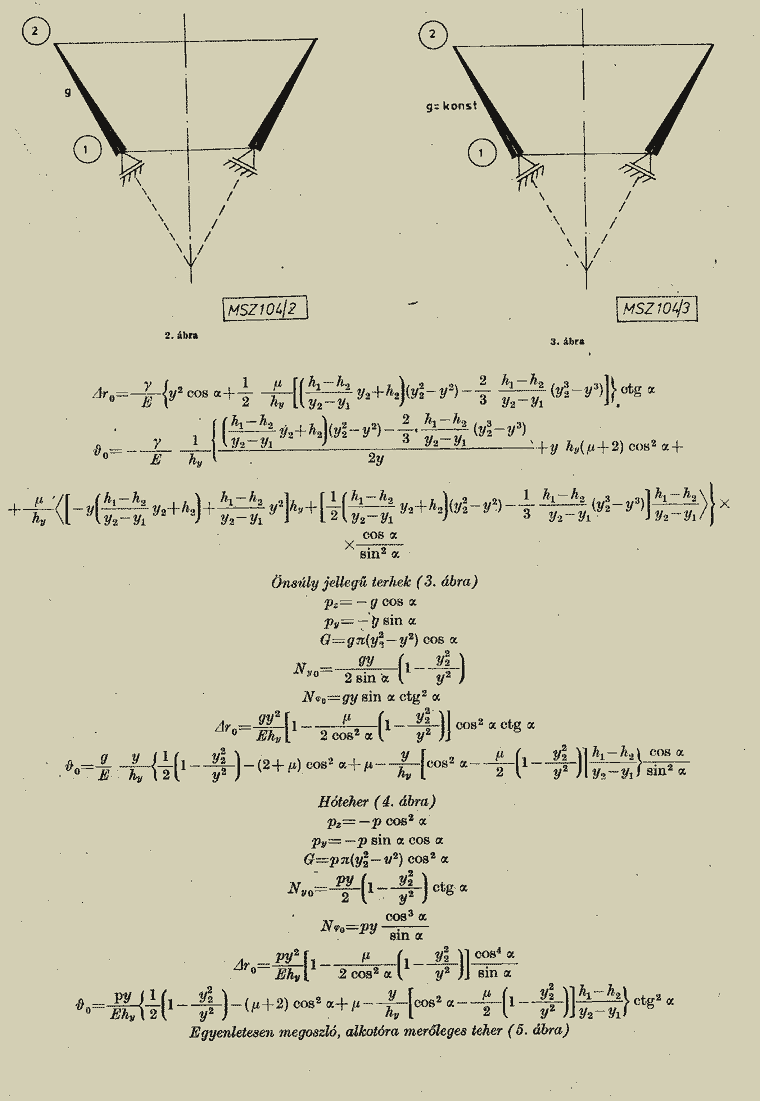 2
2
g
g=konst
1
1
MSZ104/2
MSZ104/3
2. ábra
3. ábra
Δr₀=γ/E{y² cos α+1/2 μ/h_y[((h₁−h₂)/(y₂−y₁) y₂+h₂)(y₂²−y²)−2/3 (h₁−h₂)/(y₂−y₁) (y₂³−y³)]} ctg α
ϑ₀=−γ/E 1/h_y{[((h₁−h₂)/(y₂−y₁) y₂+h₂)(y₂²−y²)−2/3·(h₁−h₂)/(y₂−y₁) (y₂³−y³)]/2y+y h_y(μ+2) cos² α+
+μ/h_y⟨[−y((h₁−h₂)/(y₂−y₁) y₂+h₂)+(h₁−h₂)/(y₂−y₁) y²]h_y+[1/2((h₁−h₂)/(y₂−y₁) y₂+h₂)(y₂²−y²)−1/3 (h₁−h₂)/(y₂−y₁) (y₂³−y³)](h₁−h₂)/(y₂−y₁)⟩}×
×cos α/sin² α
Önsúly jellegű terhek (3. ábra)
p_z=−g cos α
p_y=−g sin α
G=gπ(y₂²−y²) cos α
N_y₀=gy/(2 sin α)(1−y₂²/y²)
N_φ₀=gy sin α ctg² α
Δr₀=gy²/Eh_y[1−μ/(2 cos² α)(1−y₂²/y²)] cos² α ctg α
ϑ₀=g/E y/h_y{1/2(1−y₂²/y²)−(2+μ) cos² α+μ−y/h_y[cos² α−μ/2(1−y₂²/y²)](h₁−h₂)/(y₂−y₁)}cos α/sin² α
Hóteher (4. ábra)
p_z=−p cos² α
p_y=−p sin α cos α
G=pπ(y₂²−y²) cos² α
N_y₀=py/2(1−y₂²/y²) ctg α
N_φ₀=py cos³ α/sin α
Δr₀=py²/Eh_y[1−μ/(2 cos² α)(1−y₂²/y²)] cos⁴ α/sin α
ϑ₀=py/Eh_y{1/2(1−y₂²/y²)−(μ+2) cos² α+μ−y/h_y[cos² α−μ/2(1−y₂²/y²)](h₁−h₂)/(y₂−y₁)} ctg² α
Egyenletesen megoszló, alkotóra merőleges teher (5. ábra)